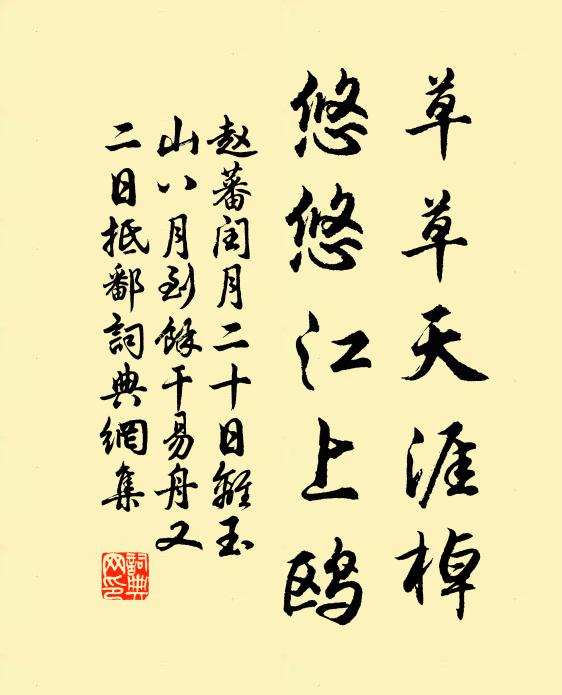 草草天涯棹
悠悠江上鸥
赵蕃闰月二十日離玉
山八月到馀干易舟又
二日抵鄱詞典網集
詞典网印